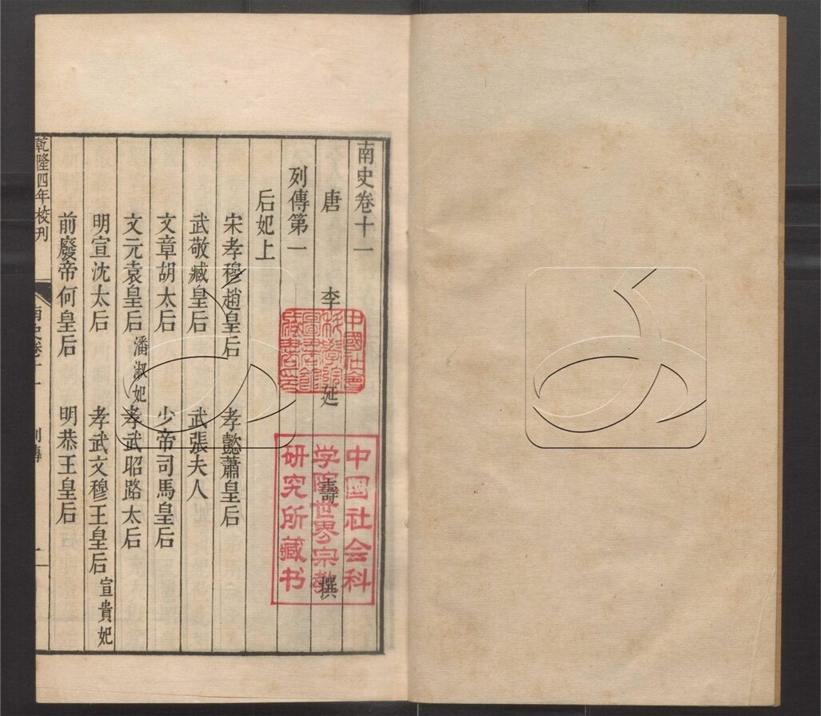 南史卷十一
唐 李延壽撰
列傳第一
后妃上
宋孝穆趙皇后 孝懿蕭皇后
武敬臧皇后 武張夫人
文章胡太后 少帝司馬皇后
文元袁皇后 潘淑妃 孝武昭路太后
明宣沈太后 孝武文穆王皇后 宣貴妃
前廢帝何皇后 明恭王皇后
乾隆四年校刊
南史卷十一 列傳 一
中國社會科學院圖書館藏書印
中国社会科学院世界宗教研究所藏书